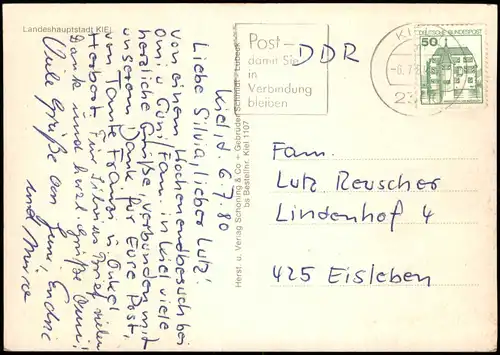 Landeshauptstadt KIEL
Kiel, d. 6.7.80
Liebe Silvia, lieber Lutz!
von einem Wochenendbesuch bei
Omi u. Guni Fam. in Kiel viele
herzliche Grüße, verbunden mit
unserem Dank für Eure Post,
von Tante Fränzi u. Onkel
Herbert. Für Silvias Brief vielen
Dank und herzl. Grüße Omi!
Viele Grüße von Guni,
und
Herst. u. Verlag Schöning & Co + Gebrüder Schmidt - Lübeck
bs Bestellnr. Kiel 1107
Post-
damit Sie
in
Verbindung
bleiben
DDR
KI
-6.7.8
23
50
DEUTSCHE BUNDESPOST
Fam.
Lutz Reuscher
Lindenhof 4
425 Eisleben